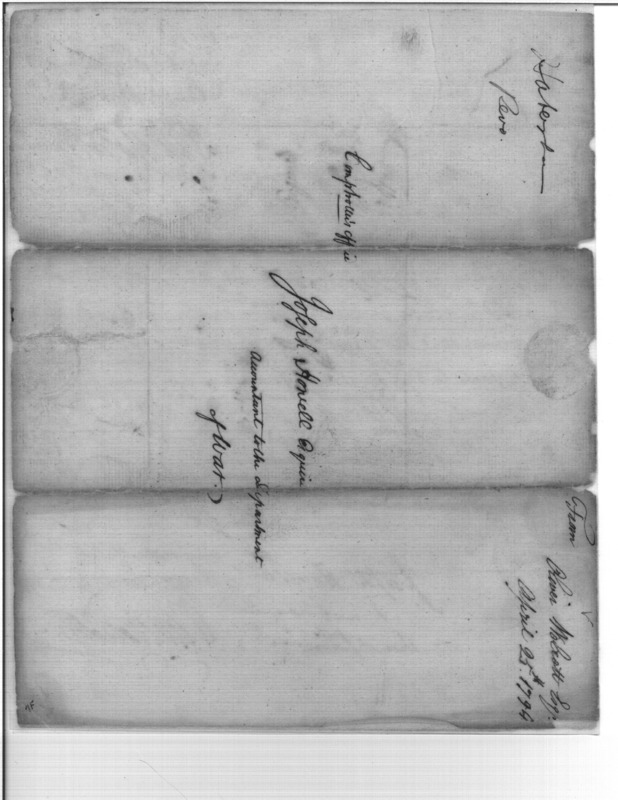 Comptroller's Office
Joseph Howell Esquire
Accountant to the Department
of War.
From
Oliver Wolcott Esqr.
April 25th. 1794